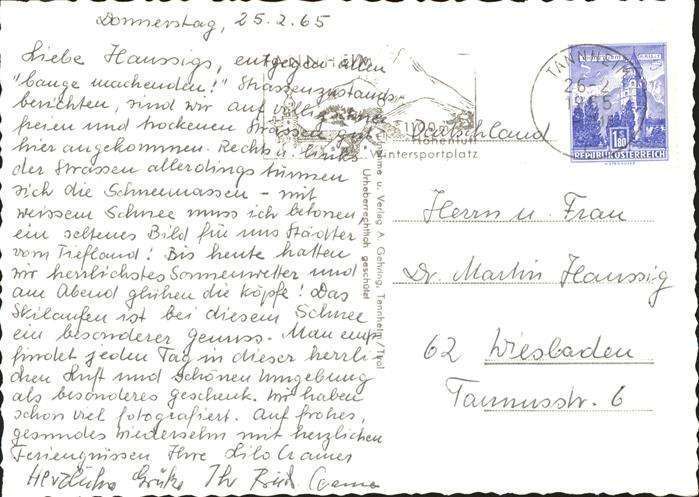 Donnerstag, 25.2.65
Liebe Haussigs, entgegen allen
"bange machenden!" Strassenzustands-
berichten, sind wir auf völlig
freien und trockenen Strassen gut
hier angekommen. Rechts u. links
der Strassen allerdings türmen
sich die Schneemassen – mit
weissem Schnee muss ich betonen
ein seltenes Bild für uns Städter
vom Tiefland! Bis heute hatten
wir herrlichstes Sonnenwetter und
am Abend glühen die Köpfe! Das
Skilaufen ist bei diesem Schnee
ein besonderer Genuss. Man emp-
findet jeden Tag in dieser herrli-
chen Luft und schönen Umgebung
als besonderes Geschenk. Wir haben
schon viel fotografiert. Auf frohes,
gesundes Wiedersehn mit herzlichen
Feriengrüssen Ihre Lilo Cramer
Herzliche Grüße Ihr
Aufnahme u. Verlag A. Gehring, Tannheim / Tirol
Urheberrechtlich geschützt
TANNHEIM
Höhenluft
Wintersportplatz
TANNHEIM
26.2
1965
1.80
REPUBLIK ÖSTERREICH
Deutschland
Herrn u. Frau
Dr. Martin Haussig
62 Wiesbaden
Taunusstr. 6